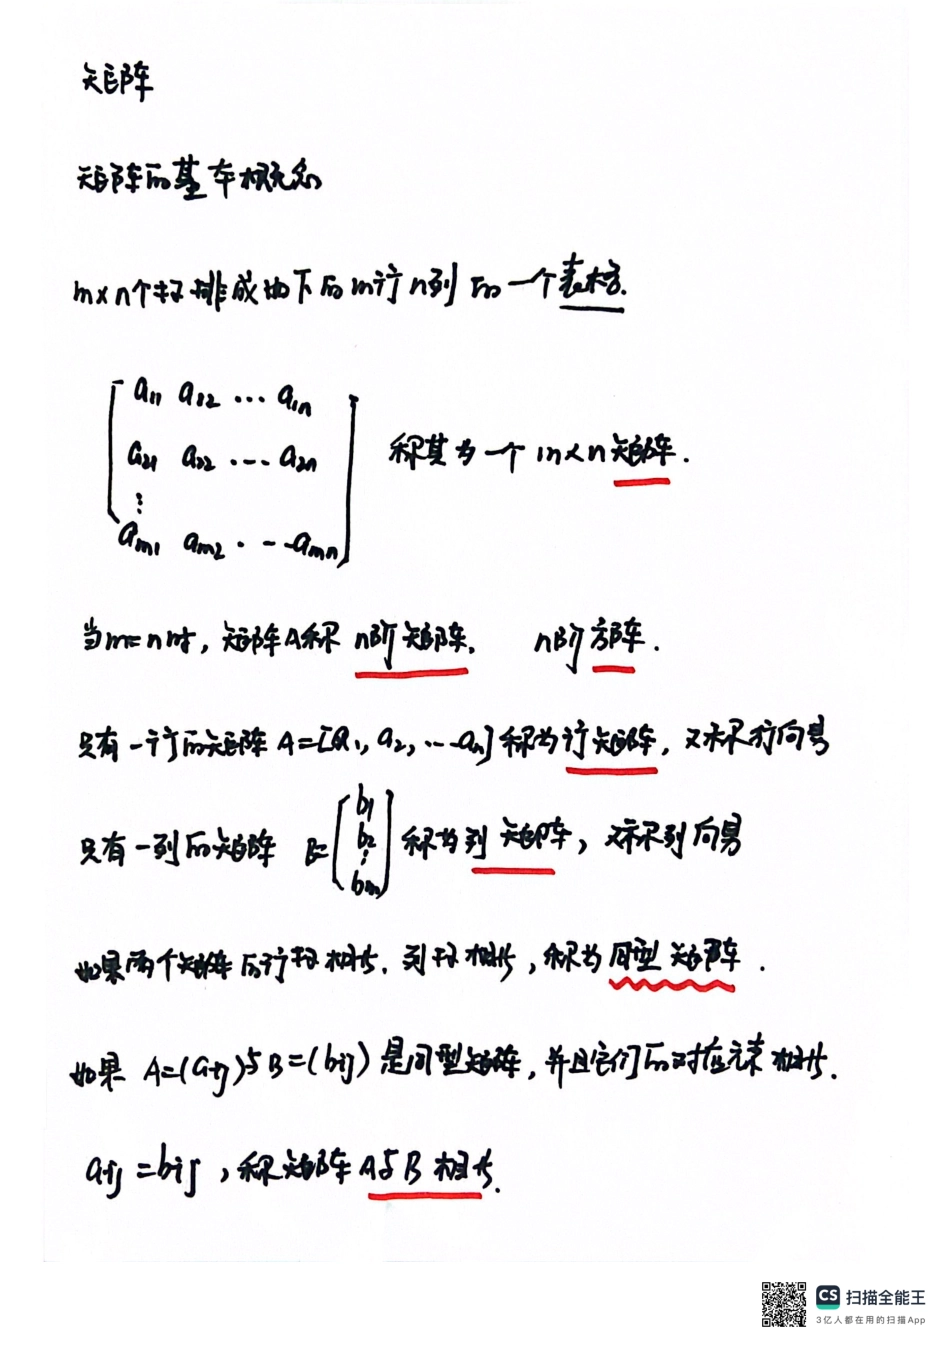 矩阵
矩阵的基本概念
m×n个数排成如下的m行n列的一个表格.
a₁₁ a₁₂ ··· a₁ₙ
a₂₁ a₂₂ ··· a₂ₙ 称其为一个m×n矩阵.
⋮
aₘ₁ aₘ₂ ··· aₘₙ
当m=n时,矩阵A称n阶矩阵. n阶方阵.
只有一行的矩阵 A=[a₁, a₂, ···aₙ]称为行矩阵, 又称行向量
只有一列的矩阵 B=[b₁ b₂ ⋮ bₘ] 称为列矩阵, 又称列向量
如果两个矩阵的行数相等.列数相等,称为同型矩阵.
如果 A=(aij)与B=(bij)是同型矩阵,并且它们的对应元素相等.
aij=bij,称矩阵A与B相等.
CS 扫描全能王
3亿人都在用的扫描App